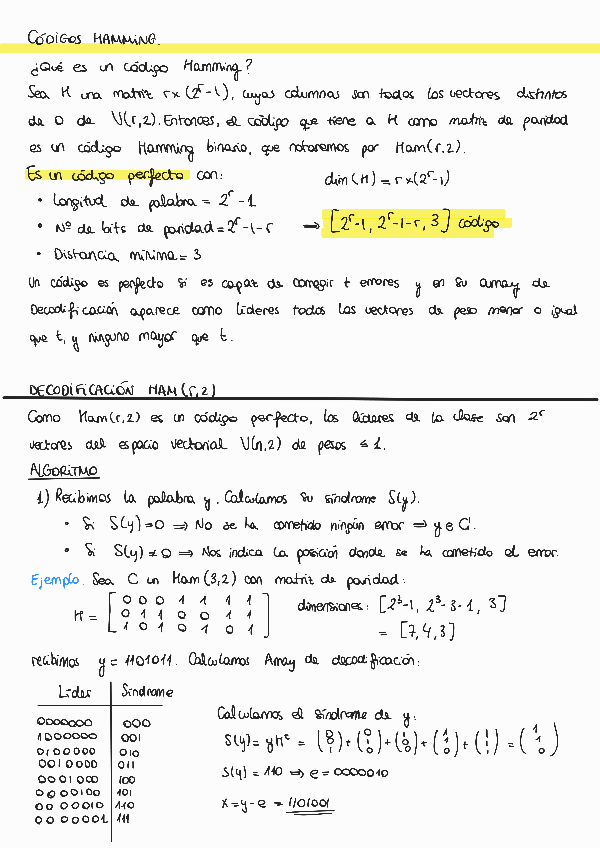 CÓDIGOS HAMMING.
¿Qué es un código Hamming?
Sea H una matriz r×(2^r-1), cuyas columnas son todos los vectores distintos
de 0 de V(r,2). Entonces, el código que tiene a H como matriz de paridad
es un código Hamming binario, que notaremos por Ham(r,2).
Es un código perfecto con: dim(H) = r×(2^r-1)
• Longitud de palabra = 2^r-1
• Nº de bits de paridad = 2^r-1-r ⇒ [2^r-1, 2^r-1-r, 3] código
• Distancia mínima = 3
Un código es perfecto si es capaz de corregir t errores y en su array de
Decodificación aparece como líderes todos los vectores de peso menor o igual
que t, y ninguno mayor que t.
DECODIFICACIÓN HAM(r,2)
Como Ham(r,2) es un código perfecto, los líderes de la clase son 2^r
vectores del espacio vectorial V(n,2) de pesos ≤ 1.
ALGORITMO
1) Recibimos la palabra y. Calculamos su síndrome S(y).
• Si S(y)=0 ⇒ No se ha cometido ningún error ⇒ y ∈ C.
• Si S(y)≠0 ⇒ Nos indica la posición donde se ha cometido el error.
Ejemplo. Sea C un Ham(3,2) con matriz de paridad:
0 0 0 1 1 1 1
H = [ 0 1 1 0 0 1 1 ] dimensiones: [2^3-1, 2^3-3-1, 3]
1 0 1 0 1 0 1
= [7,4,3]
recibimos y = 1101011. Calculamos Array de decodificación:
Líder Síndrome
0000000 000
1000000 001
0100000 010
0010000 011
0001000 100
0000100 101
0000010 110
0000001 111
Calculamos el síndrome de y:
S(y) = yH^t = (0 0 1) + (0 1 0) + (1 0 0) + (1 1 0) + (1 1 1) = (1 1 0)
S(y) = 110 ⇒ e = 0000010
x = y-e = 1101001